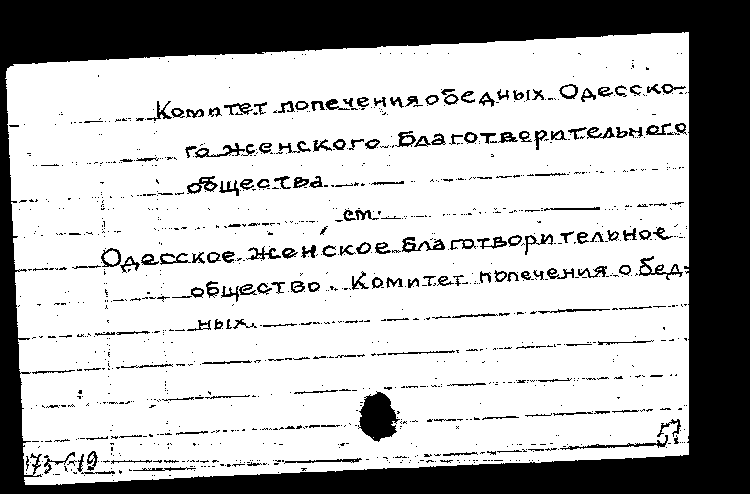 Комитет попечения о бедных Одесско-
го женского благотворительного
общества
см.
Одесское женское благотворительное
общество. Комитет попечения о бед-
ных.
57
173-619